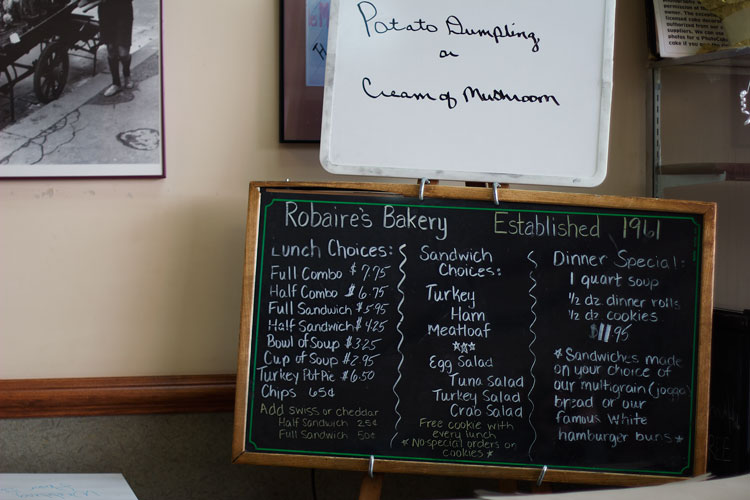 Potato Dumpling
or
Cream of Mushroom
Robaire's Bakery Established 1961
Lunch Choices:
Full Combo $7.75
Half Combo $6.75
Full Sandwich $5.95
Half Sandwich $4.25
Bowl of Soup $3.25
Cup of Soup $2.95
Turkey Pot Pie $6.50
Chips 65¢
Add swiss or cheddar
Half Sandwich 25¢
Full Sandwich 50¢
Sandwich
Choices:
Turkey
Ham
Meatloaf
Egg Salad
Tuna Salad
Turkey Salad
Crab Salad
Free cookie with
every lunch
*No special orders on
cookies*
Dinner Special:
1 quart soup
½ dz dinner rolls
½ dz cookies
$11.95
*Sandwiches made
on your choice of
our multigrain (jogga)
bread or our
famous White
hamburger buns*